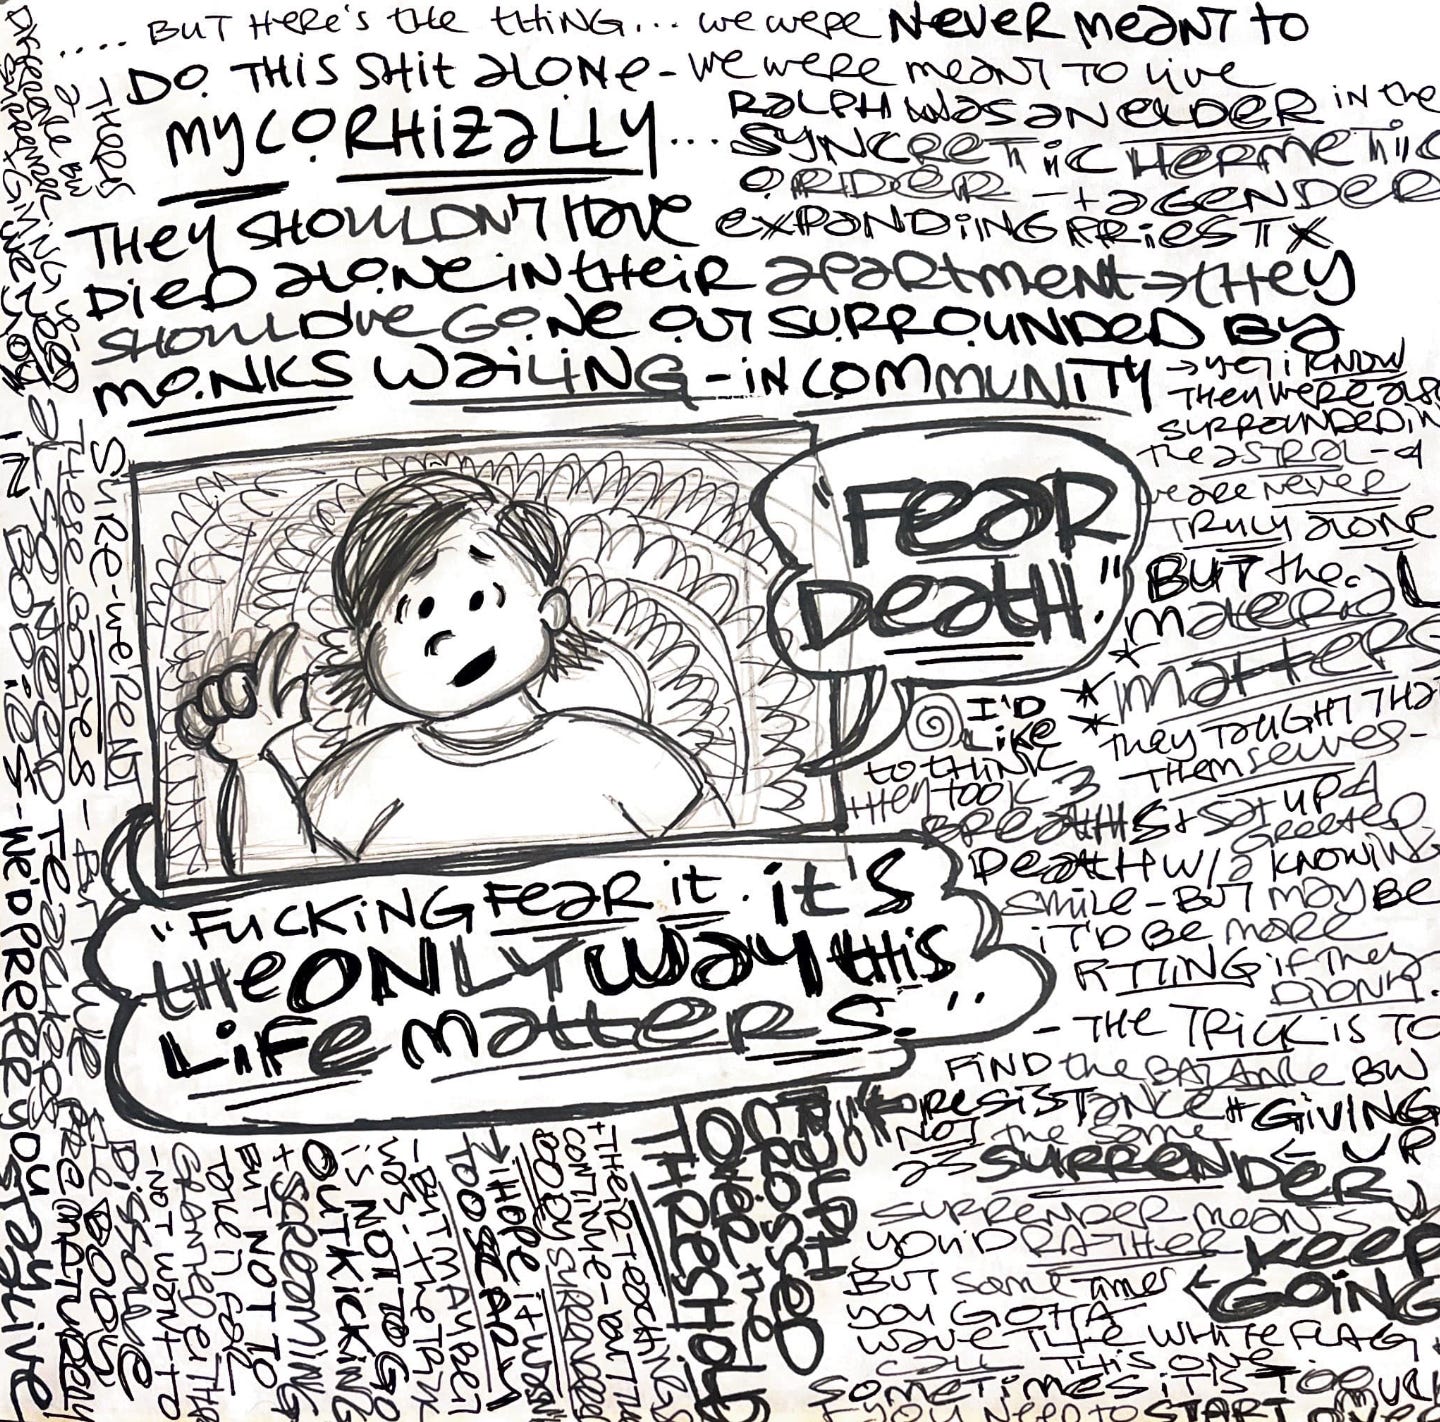 .... BUT HERE'S THE THING... WE WERE NEVER MEANT TO
DO THIS SHIT ALONE - WE WERE MEANT TO LIVE
MYCORHIZALLY...
RALPH WAS AN ELDER IN THE
SYNCRETIC HERMETIC
ORDER - + A GENDER
EXPANDING PRIESTX
THEY SHOULDN'T HAVE
DIED ALONE IN THEIR APARTMENT → THEY
SHOULD'VE GONE OUT SURROUNDED BY
MONKS WAILING - IN COMMUNITY
→ YET I KNOW
THEY WERE ALSO
SURROUNDED IN
THE ASTRAL -
WE ARE NEVER
TRULY ALONE
BUT THE
MATERIAL
* MATTERS
* THEY TAUGHT THAT
THEMSELVES -
"FEAR
DEATH."
I'D
LIKE
TO THINK
THEY TOOK 3
BREATHS + SAT UP &
GREETED
DEATH W/ A KNOWING
SMILE - BUT MAYBE
IT'D BE MORE
FITTING IF THEY
DIDN'T.
"FUCKING FEAR IT. IT'S
THE ONLY WAY THIS
LIFE MATTERS."
- THE TRICK IS TO
FIND THE BALANCE BW
RESISTANCE + GIVING
UP
NOT THE SAME
AS SURRENDER
SURRENDER MEANS
YOU'D RATHER KEEP
GOING
BUT SOMETIMES
YOU GOTTA
WAVE THE WHITE FLAG
CALL THIS ONE.
SOMETIMES IT'S TOO MUCH
YOU NEED TO START
RALPH
CROSSED
OVER THE
THRESHOLD
+ THEIR TEACHINGS
CONTINUE - BUT THE
BODY SURRENDERED
I HOPE IT WASN'T
TOO EARLY
- BUT MAYBE IT
WAS - THE TRICK
IS NOT TO GO
OUT KICKING
+ SCREAMING
BUT NOT TO
TAKEN FOR
GRANTED EITHER
- NOT WANT TO
DISSOLVE
THE BODY
PREMATURELY
SURE - WE'RE NOT
THESE BODIES - BUT WE
ALSO NEED TEACHERS
IN BODIES - WE PREFER YOU STAY LIVE
THERE IS
A DIFFERENCE BW
SURRENDERING